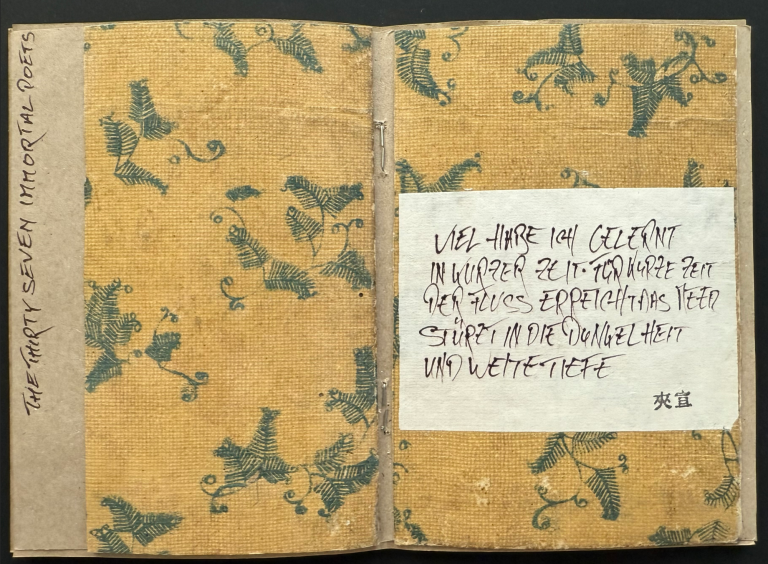 THE THIRTY SEVEN IMMORTAL POETS
VIEL HABE ICH GELERNT
IN KURZER ZEIT. FÜR KURZE ZEIT
DER FLUSS ERREICHT DAS MEER
STÜRZT IN DIE DUNKELHEIT
UND WEITE TIEFE
夾宣